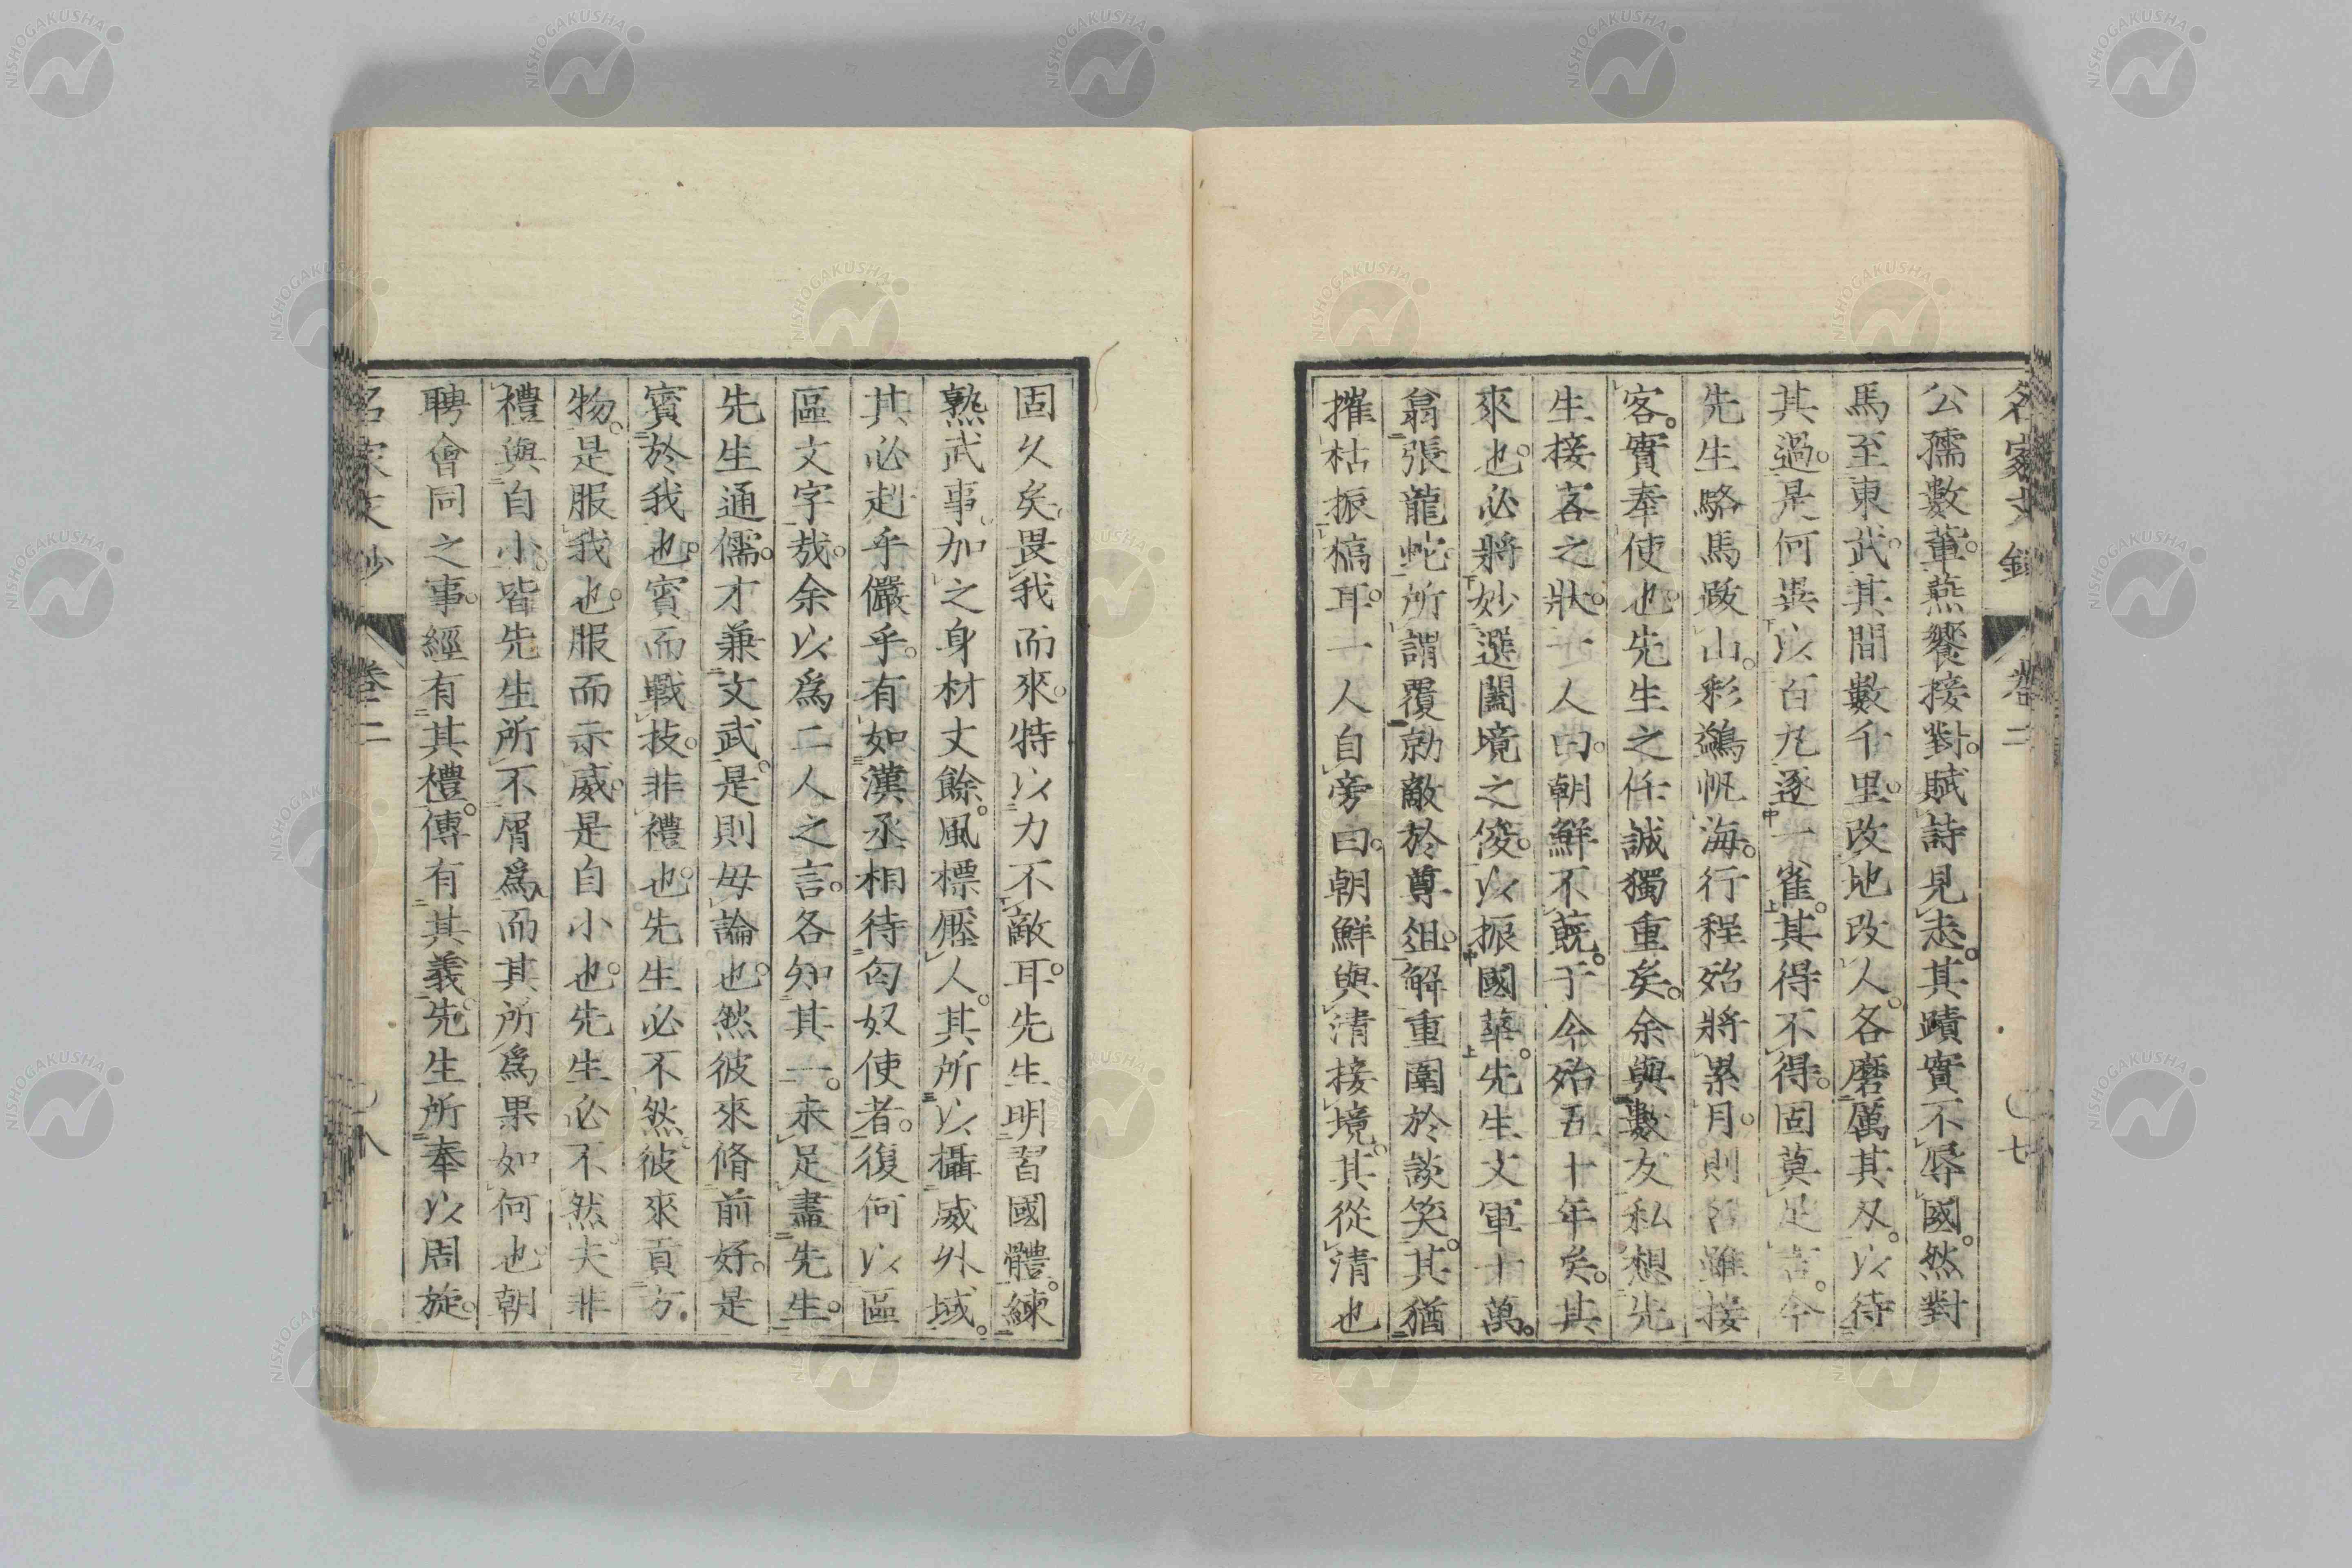 公孺數輩。燕饗接對。賦詩見志。其蹟實不辱國。然對
馬至東武。其間數千里。改地改人。各磨厲其刄。以待
其過。是何異以百九逐一雀。其得不得。固莫足言。今
先生駱馬踰山。彩鷁帆海。行程殆將累月。則雖接
客。實奉使也。先生之任誠獨重矣。余與數友私想先
生接客之狀。一人曰。朝鮮不覲。于今殆五十年矣。其
來也。必將妙選闔境之俊。以振國華。先生文軍十萬。
翕張龍蛇。所謂覆勍敵於尊俎。解重圍於談笑。其猶
摧枯振槁耳。一人自旁曰。朝鮮與清接境。其從清也
固久矣。畏我而來。特以力不敵耳。先生明習國體。練
熟武事。加之身材丈餘。風標壓人。其所以攝威外域。
其必赳乎儼乎。有如漢丞相待匈奴使者。復何以區
區文字哉。余以爲二人之言。各知其一。未足盡先生。
先生通儒。才兼文武。是則毋論也。然彼來脩前好。是
賓於我也。賓而戰技。非禮也。先生必不然。彼來貢方
物。是服我也。服而示威。是自小也。先生必不然。夫非
禮與自小。皆先生所不屑爲。而其所爲果如何也。朝
聘會同之事。經有其禮。傳有其義。先生所奉以周旋。
名家文鈔 卷二 八